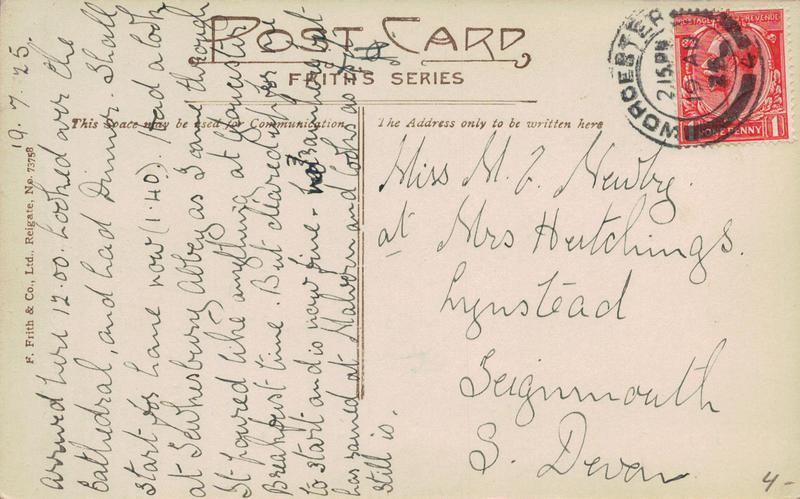 POST CARD
FRITH'S SERIES
This Space may be used for Communication.
The Address only to be written here
F. Frith & Co., Ltd., Reigate, No. 73758
19.7.25.
Arrived here 12.00. Looked over the
Cathedral, and had Dinner. Shall
start for home now (1.40). Had a look
at Tewkesbury Abbey as I came through
It poured like anything at Gloucester
Breakfast time. But cleared up for me
to start and is now fine -
has rained at Malvern and looks as if it
still is.
Miss M. J. Newby.
at Mrs Hutchings.
Lynstead
Teignmouth
S. Devon
WORCESTER
2 15 PM
19
25
POSTAGE REVENUE
ONE PENNY
1
4-